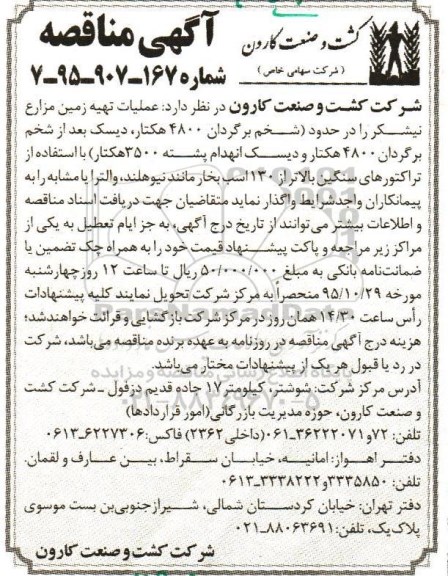 آگهی مناقصه
کشت و صنعت کارون
(شرکت سهامی خاص)
شماره ۱۶۷-۹۰۷-۹۵-۷
شرکت کشت و صنعت کارون در نظر دارد: عملیات تهیه زمین مزارع
نیشکر را در حدود (شخم برگردان ۴۸۰۰ هکتار، دیسک بعد از شخم
برگردان ۴۸۰۰ هکتار و دیسک انهدام پشته ۳۵۰۰هکتار) با استفاده از
تراکتورهای سنگین بالاتر از ۱۳۰ اسب بخار مانند نیوهلند، والترا یا مشابه را به
پیمانکاران واجد شرایط واگذار نماید متقاضیان جهت دریافت اسناد مناقصه
و اطلاعات بیشتر می‌توانند از تاریخ درج آگهی، به جز ایام تعطیل به یکی از
مراکز زیر مراجعه و پاکت پیشنهاد قیمت خود را به همراه چک تضمین یا
ضمانت‌نامه بانکی به مبلغ ۵۰/۰۰۰/۰۰۰ ریال تا ساعت ۱۲ روز چهارشنبه
مورخه ۹۵/۱۰/۲۹ منحصراً به مرکز شرکت تحویل نمایند کلیه پیشنهادات
رأس ساعت ۱۴/۳۰ همان روز در مرکز شرکت بازگشایی و قرائت خواهند شد؛
هزینه درج آگهی مناقصه در روزنامه به عهده برنده مناقصه می‌باشد، شرکت
در رد یا قبول هر یک از پیشنهادات مختار می‌باشد.
آدرس مرکز شرکت: شوشتر، کیلومتر ۱۷ جاده قدیم دزفول ـ شرکت کشت
و صنعت کارون، حوزه مدیریت بازرگانی (امور قراردادها)
تلفن: ۷۲و۳۶۲۲۲۰۷۱-۰۶۱ (داخلی ۲۳۶۲) فاکس: ۶۲۲۷۳۰۶-۰۶۱۳
دفتر اهواز: امانیه، خیابان سقراط، بین عارف و لقمان.
تلفن: ۳۳۳۵۸۵۰و۳۳۳۸۲۲۲-۰۶۱۳
دفتر تهران: خیابان کردستان شمالی، شیراز جنوبی بن بست موسوی
پلاک یک، تلفن: ۸۸۰۶۳۶۹۱-۰۲۱
شرکت کشت و صنعت کارون